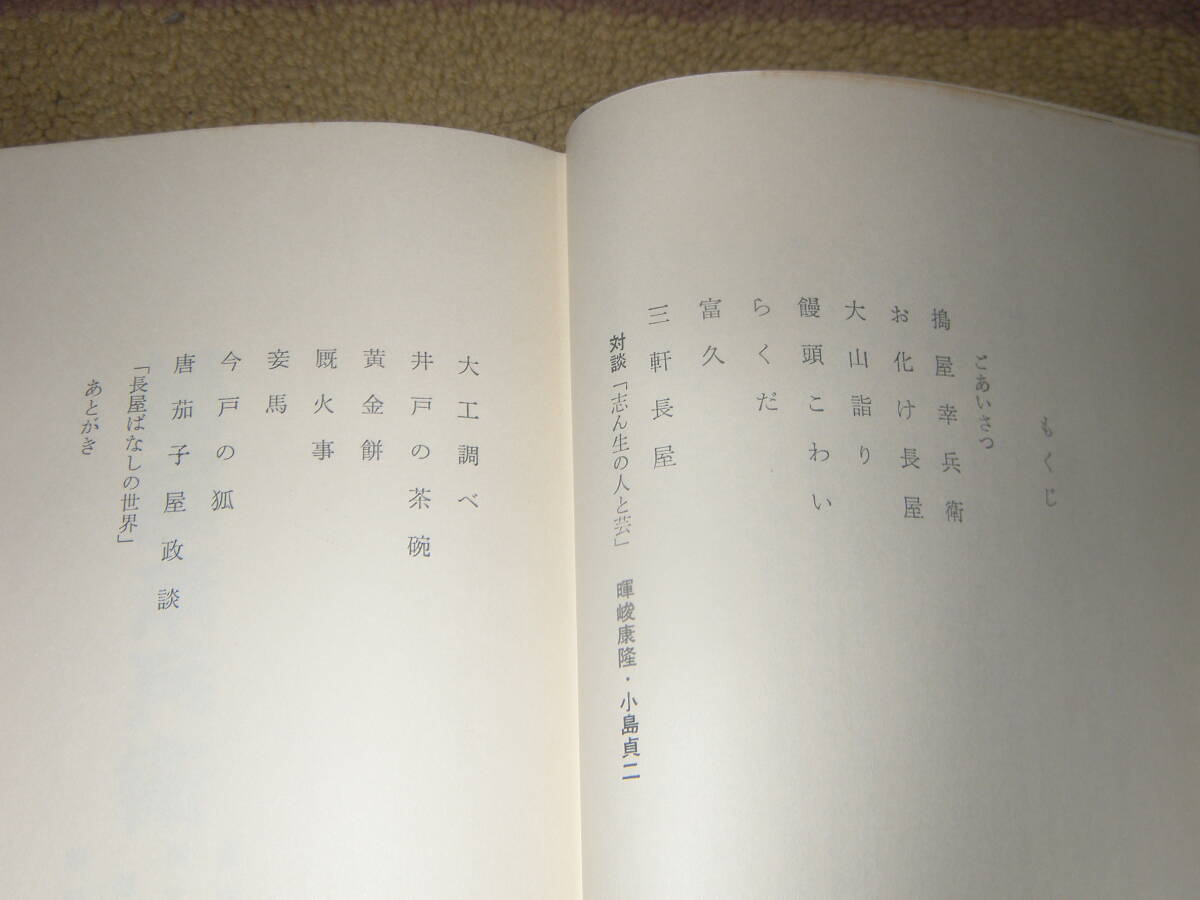 もくじ
ごあいさつ
搗屋幸兵衛
お化け長屋
大山詣り
饅頭こわい
らくだ
富久
三軒長屋
対談「志ん生の人と芸」　暉峻康隆・小島貞二
大工調べ
井戸の茶碗
黄金餅
厩火事
妾馬
今戸の狐
唐茄子屋政談
「長屋ばなしの世界」
あとがき